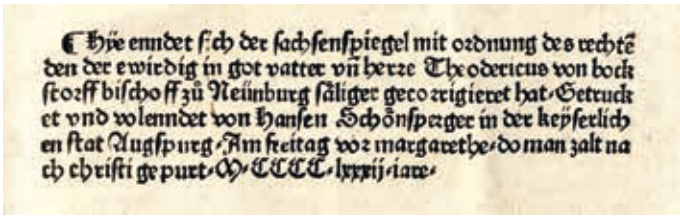 ¶ Hÿe enndet sich der sachsenspiegel mit ordnung des rechtē
den der ewirdig in got vatter vñ herre Theodericus von bock
storff bischoff zů Neünburg sāliger gecorrigieret hat. Getruck
et vnd volenndet von Hansen Schōnsperger in der keÿserlich
en stat Augspurg. Am freitag vor margarethe. do man zalt na
ch christi gepurt. M. CCCC. lxxxij. iare.